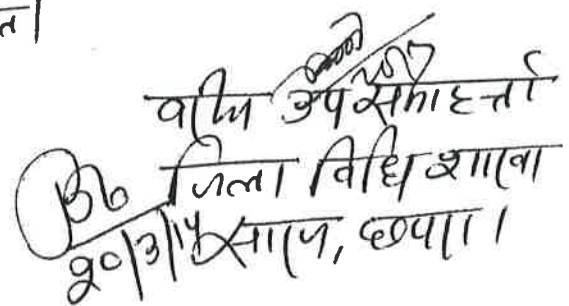 त।
वरीय उप समाहर्त्ता
जिला विधि शाखा
सारण, छपरा।